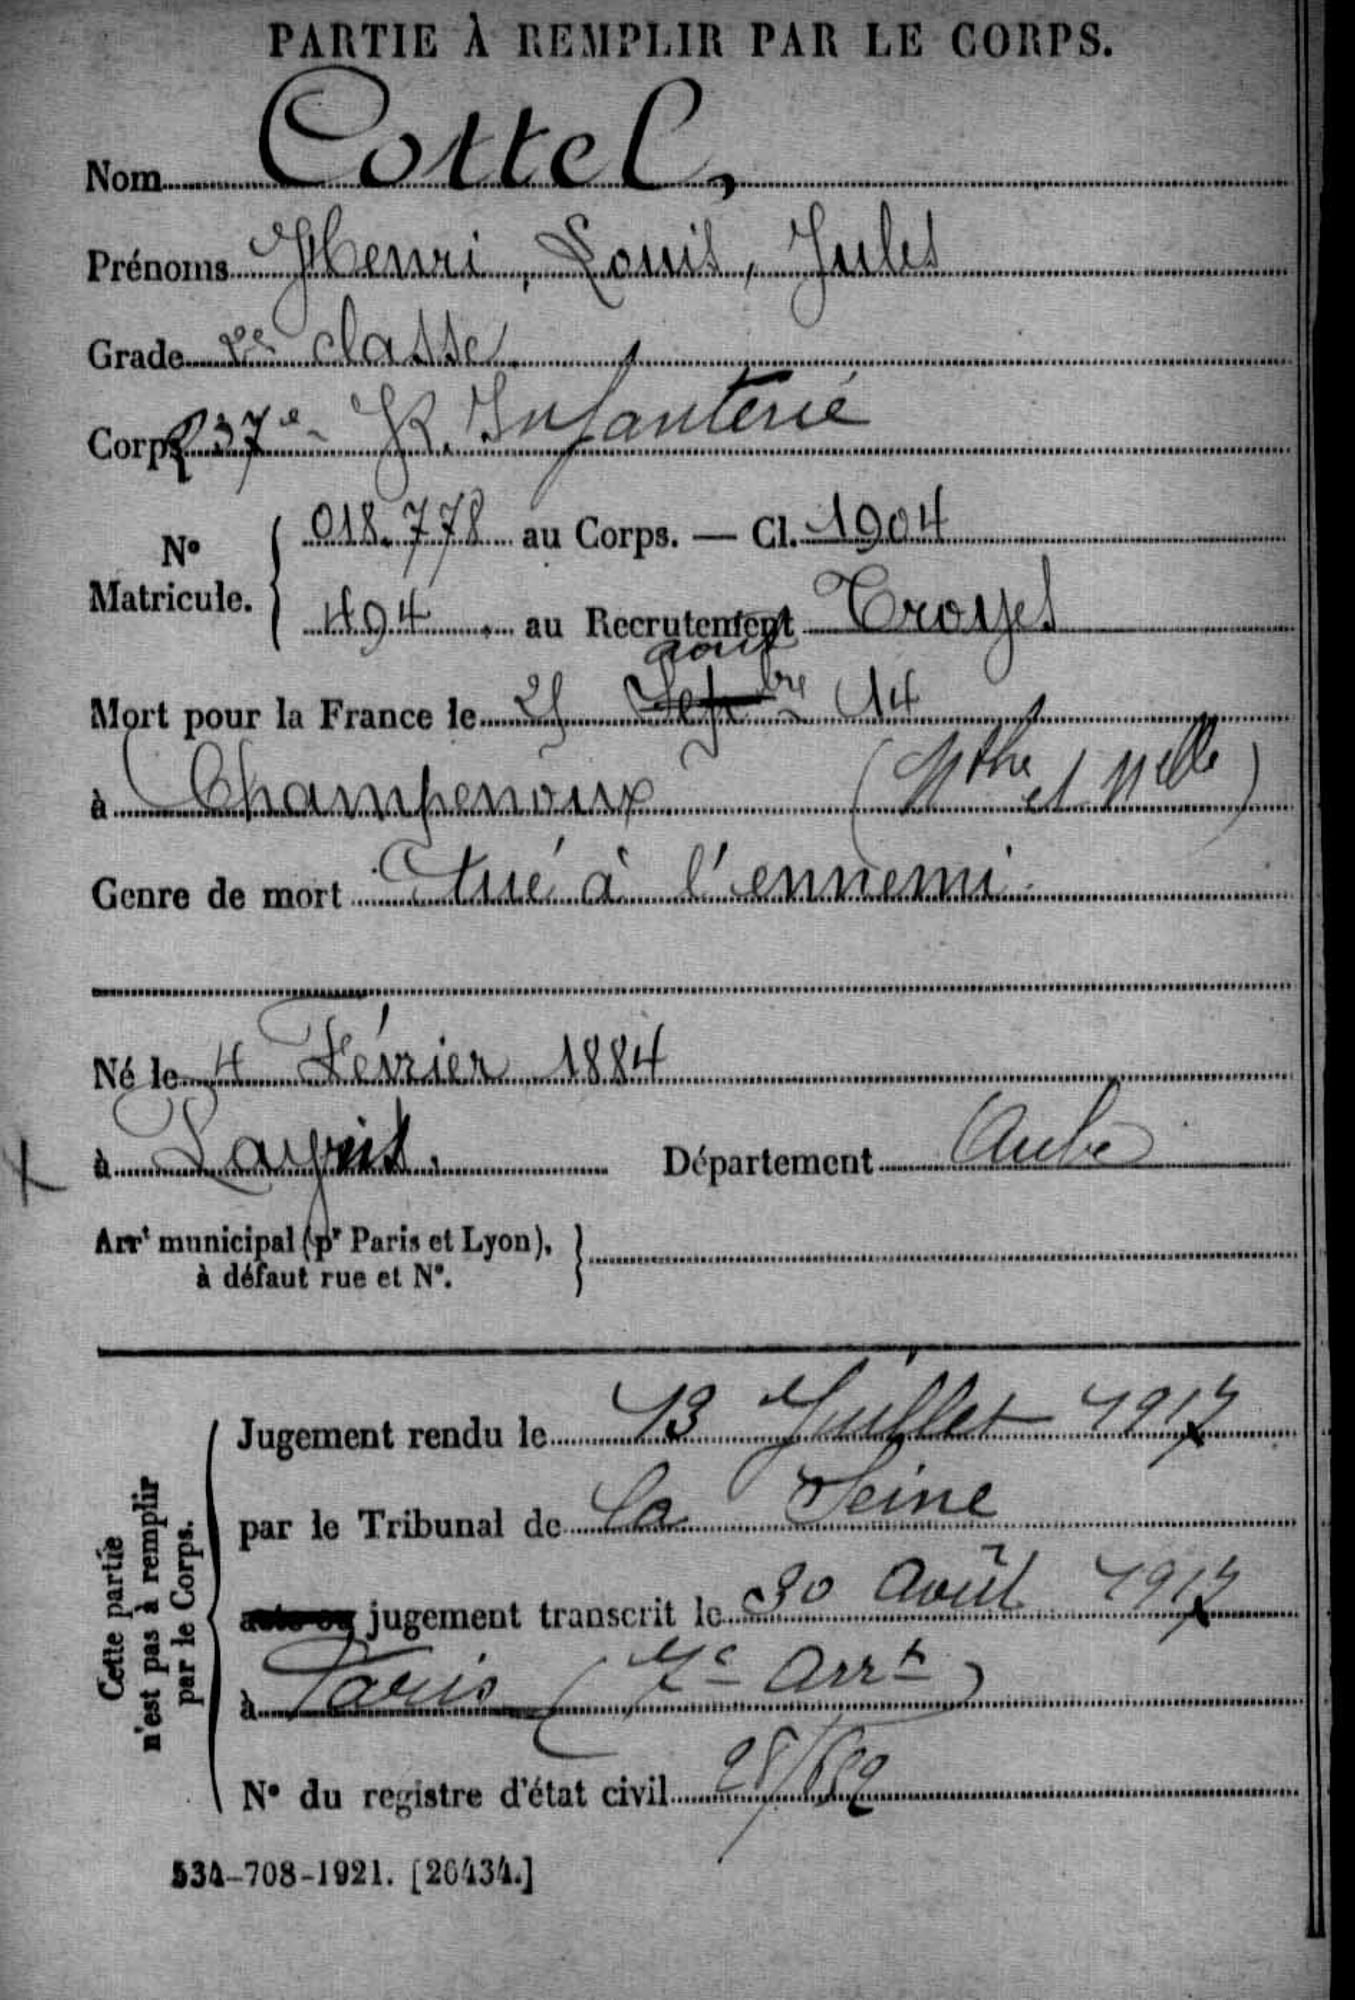 PARTIE À REMPLIR PAR LE CORPS.
Nom Cottel,
Prénoms Henri, Louis, Jules
Grade 2e classe
Corps 237e R. Infanterie
No Matricule. 018.778 au Corps. — Cl. 1904
494 au Recrutement Troyes
août
Mort pour la France le 25 Septbre 14
à Champenoux (Mthe et Melle)
Genre de mort tué à l'ennemi
Né le 4 Février 1884
à Département Aube
Arrt municipal (pr Paris et Lyon),
à défaut rue et No.
Cette partie
n'est pas à remplir
par le Corps.
Jugement rendu le 13 Juillet 1917
par le Tribunal de la Seine
acte ou jugement transcrit le 30 Août 1917
à Paris (7e Arrt)
No du registre d'état civil
534-708-1921. [26434.]